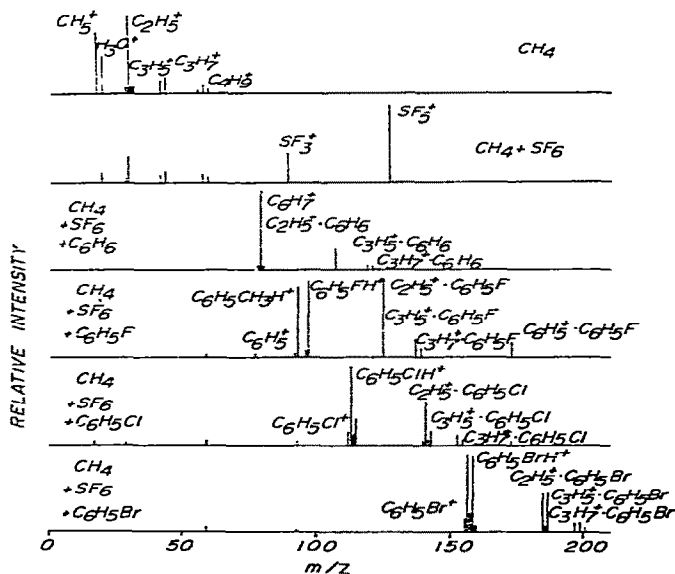 CH5+
C2H5+
H3O+
C3H5+
C3H7+
C4H9+
CH4
SF3+
SF5+
CH4 + SF6
CH4
+SF6
+C6H6
C6H7+
C2H5+·C6H6
C3H5+·C6H6
C3H7+·C6H6
CH4
+SF6
+C6H5F
C6H5CH3H+
C6H5FH+
C2H5+·C6H5F
C6H5+
C3H5+·C6H5F
C3H7+·C6H5F
C6H5+·C6H5F
CH4
+SF6
+C6H5Cl
C6H5Cl+
C6H5ClH+
C2H5+·C6H5Cl
C3H5+·C6H5Cl
C3H7+·C6H5Cl
CH4
+SF6
+C6H5Br
C6H5Br+
C6H5BrH+
C2H5+·C6H5Br
C3H5+·C6H5Br
C3H7+·C6H5Br
RELATIVE INTENSITY
0 50 100 150 200
m/z